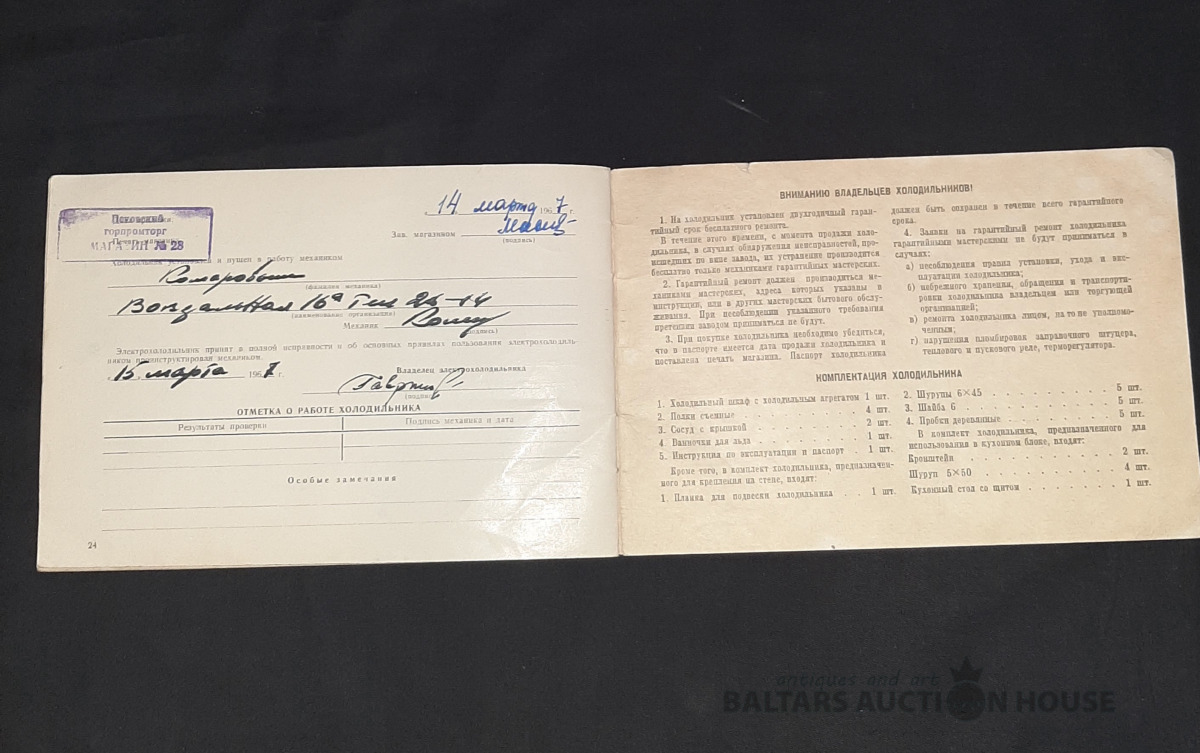 14 марта 1967 г.
Псковский
горпромторг
МАГАЗИН № 28
Зав. магазином
(подпись)
Холодильник установлен и пущен в работу механиком
Комаровым
(фамилия механика)
Вокзальная 16а
(наименование организации)
Механик
(подпись)
Электрохолодильник принят в полной исправности и об основных правилах пользования электрохолодиль-
ником проинструктирован механиком.
15 марта 1967 г.
Владелец электрохолодильника
(подпись)
ОТМЕТКА О РАБОТЕ ХОЛОДИЛЬНИКА
Результаты проверки
Подпись механика и дата
Особые замечания
24
ВНИМАНИЮ ВЛАДЕЛЬЦЕВ ХОЛОДИЛЬНИКОВ!
1. На холодильник установлен двухгодичный гаран-
тийный срок бесплатного ремонта.
В течение этого времени, с момента продажи холо-
дильника, в случаях обнаружения неисправностей, про-
исшедших по вине завода, их устранение производится
бесплатно только механиками гарантийных мастерских.
2. Гарантийный ремонт должен производиться ме-
ханиками мастерских, адреса которых указаны в
инструкции, или в других мастерских бытового обслу-
живания. При несоблюдении указанного требования
претензии заводом приниматься не будут.
3. При покупке холодильника необходимо убедиться,
что в паспорте имеется дата продажи холодильника и
поставлена печать магазина. Паспорт холодильника
должен быть сохранен в течение всего гарантийного
срока.
4. Заявки на гарантийный ремонт холодильника
гарантийными мастерскими не будут приниматься в
случаях:
а) несоблюдения правил установки, ухода и экс-
плуатации холодильника;
б) небрежного хранения, обращения и транспорти-
ровки холодильника владельцем или торгующей
организацией;
в) ремонта холодильника лицом, на то не уполномо-
ченным;
г) нарушения пломбировок заправочного штуцера,
теплового и пускового реле, терморегулятора.
КОМПЛЕКТАЦИЯ ХОЛОДИЛЬНИКА
1. Холодильный шкаф с холодильным агрегатом 1 шт.
2. Полки съемные . . . 4 шт.
3. Сосуд с крышкой . . . 2 шт.
4. Ванночки для льда . . . 1 шт.
5. Инструкция по эксплуатации и паспорт . 1 шт.
Кроме того, в комплект холодильника, предназначен-
ного для крепления на стене, входят:
1. Планка для подвески холодильника . . 1 шт.
2. Шурупы 6×45 . . . 5 шт.
3. Шайба 6 . . . 5 шт.
4. Пробки деревянные . . . 5 шт.
В комплект холодильника, предназначенного для
использования в кухонном блоке, входят:
Кронштейн . . . 2 шт.
Шуруп 5×50 . . . 4 шт.
Кухонный стол со щитом . . . 1 шт.
antiques and art
BALTARS AUCTION HOUSE